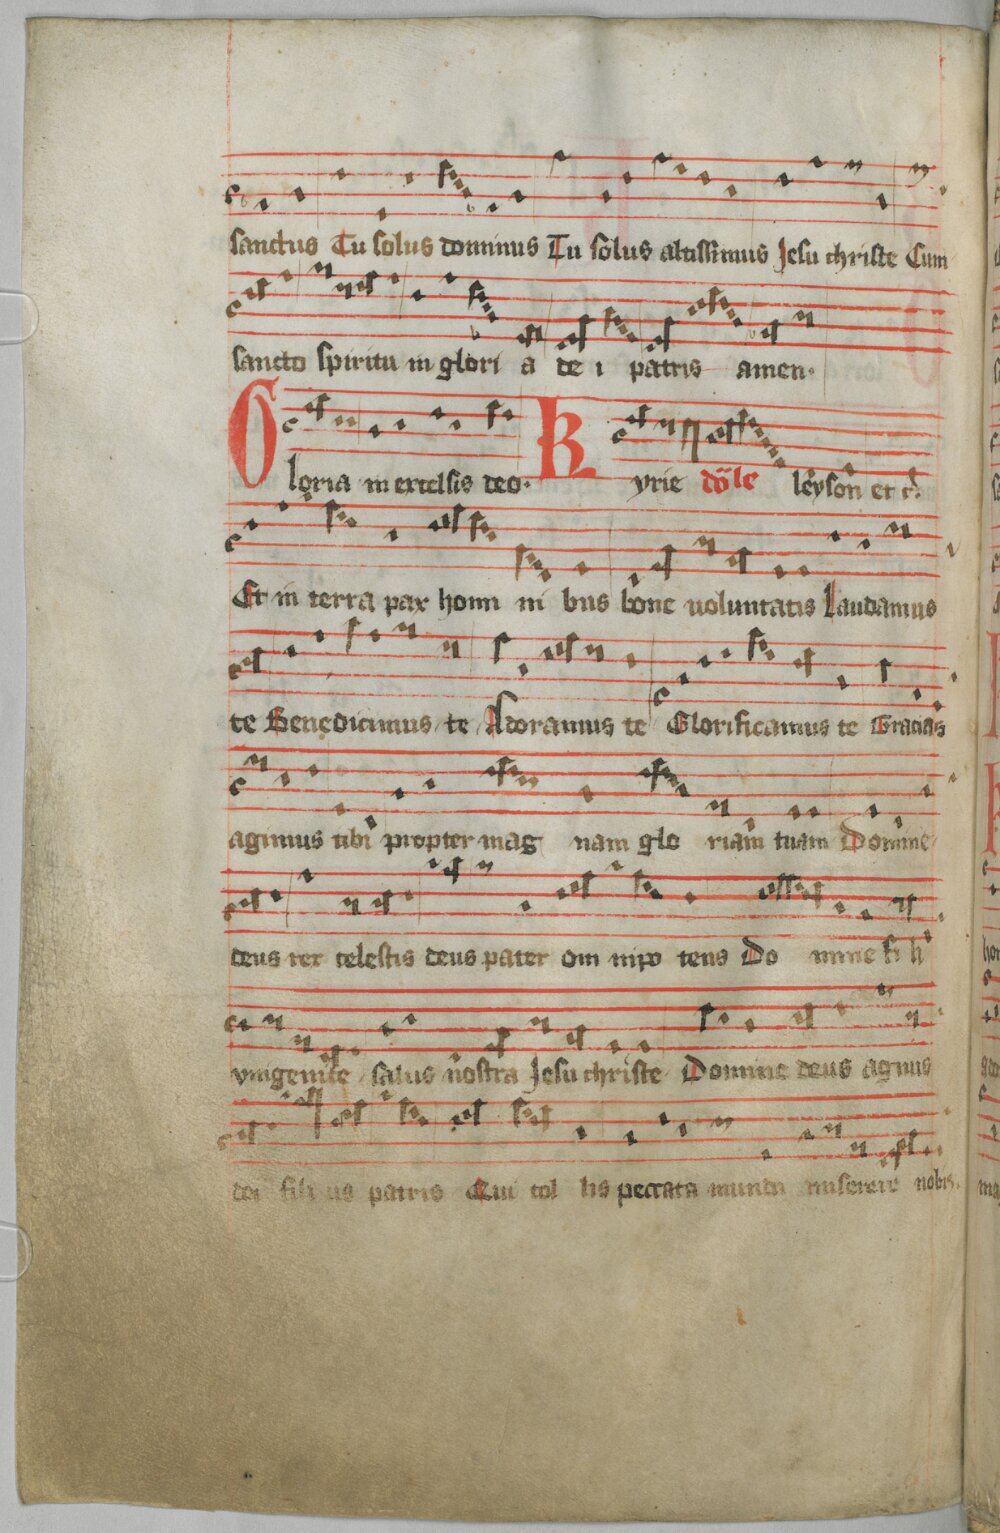 sanctus Tu solus dominus Tu solus altissimus Jesu christe Cum
sancto spiritu in glori a de i patris amen.
Gloria in excelsis deo. Kyrie leyson et c.
Et in terra pax homi ni bus bone uoluntatis Laudamus
te Benedicimus te Adoramus te Glorificamus te Gracias
agimus tibi propter mag nam glo riam tuam Domine
deus rex celestis deus pater om nipo tens Do mine fi li
vnigenite salus nostra Jesu christe Domine deus agnus
dei fili us patris Qui tol lis peccata mundi miserere nobis.